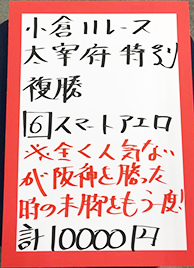 小倉11レース
太宰府特別
複勝
6 スマートアエロ
※全く人気ない
が阪神を勝った
時の末脚をもう一度!
計10000円